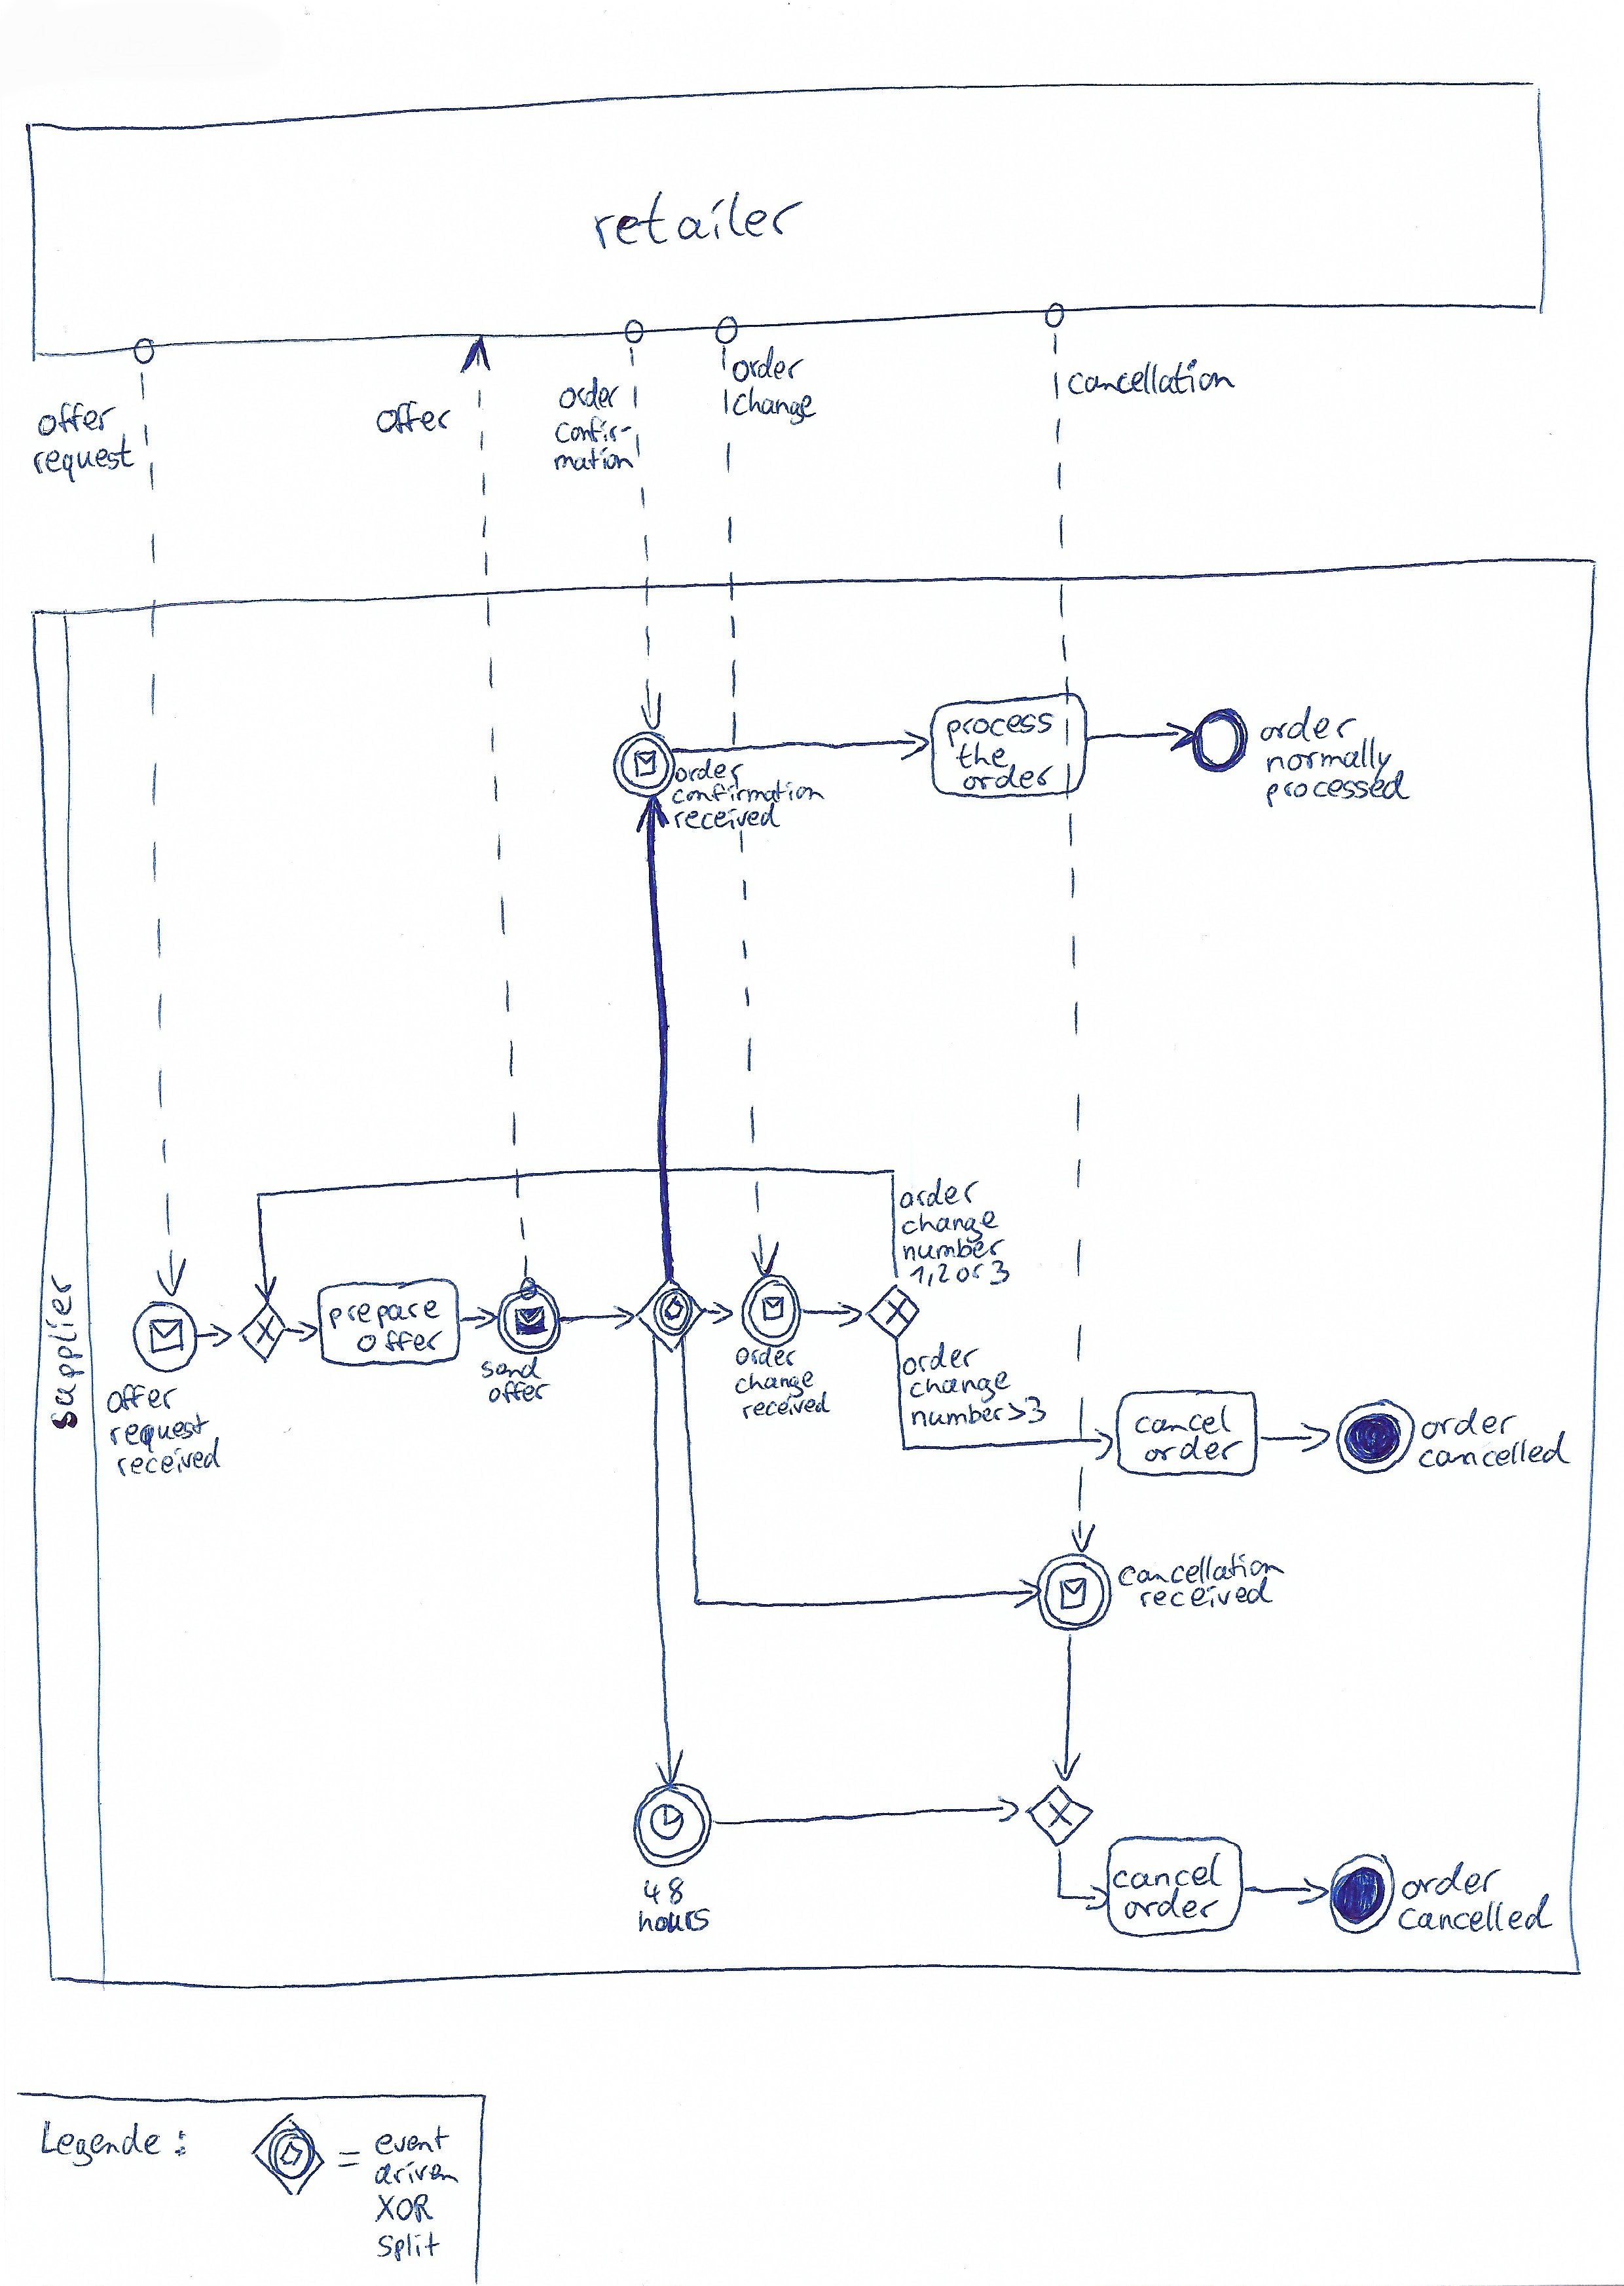 retailer
offer
request
offer
order
confir-
mation
order
change
cancellation
supplier
order
confirmation
received
process
the
order
order
normally
processed
offer
request
received
prepare
offer
send
offer
order
change
received
order
change
number
1,2 or 3
order
change
number>3
cancel
order
order
cancelled
cancellation
received
48
hours
cancel
order
order
cancelled
Legende:
= event
driven
XOR
split